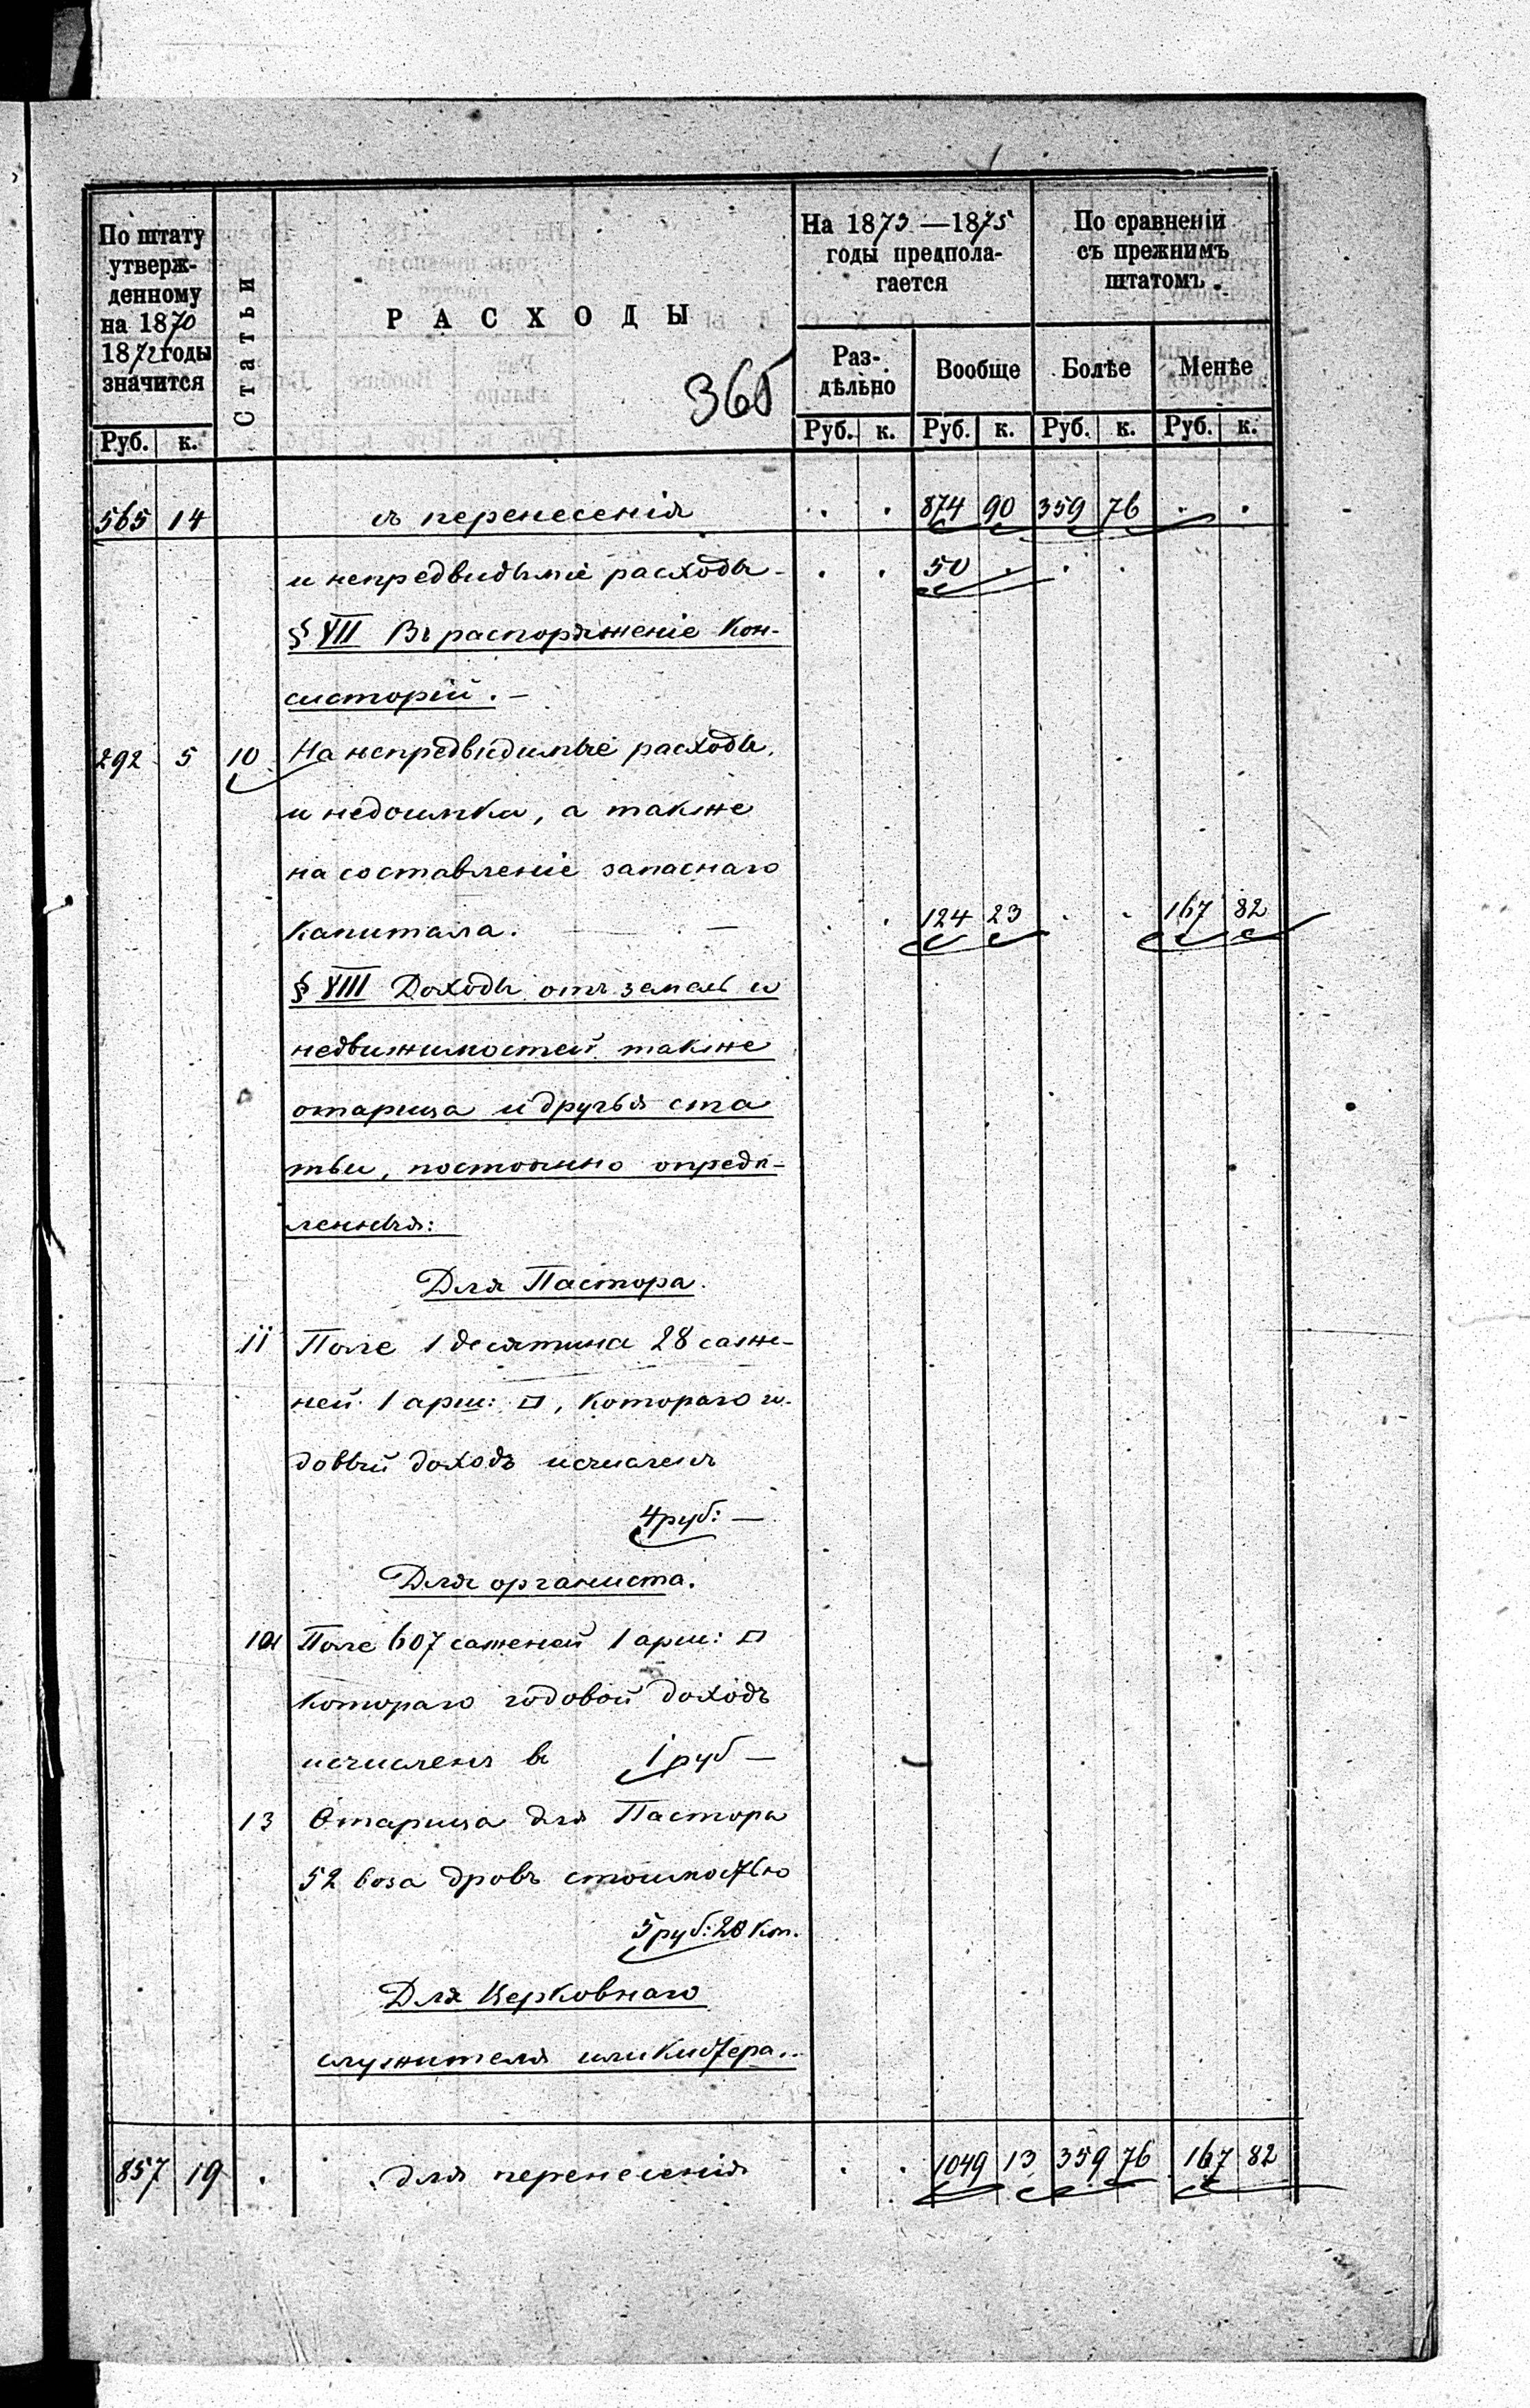 По штату утверж-денному на 1870 1872 годы значится
Статьи
РАСХОДЫ
365
На 1873—1875 годы предпола-гается
По сравненіи съ прежнимъ штатомъ.
Раз-дѣльно
Вообще
Болѣе
Менѣе
Руб. к. Руб. к. Руб. к. Руб. к. Руб. к.
565 14 съ перенесенія . . 874 90 359 76 . .
и непредвидимые расходы - . . 50 . . .
§ VII Въ распоряженіе Кон-
систорій. —
292 5 10 На непредвидимые расходы,
и недоимки, а также
на составленіе запаснаго
капитала. — . 124 23 . . 167 82
§ VIII Доходы отъ земель и
недвижимостей также
отарица и другья ста
тьи, постоянно опредѣ-
ленныя:
Для Пастора.
11 Поле 1 десятина 28 саже-
ней 1 арш: □, котораго го-
довый доходъ исчисленъ
4 руб: —
Для органиста.
12 Поле 607 саженей 1 арш: □
котораго годовой доходъ
исчисленъ въ 1 руб —
13 Отарица для Пастора
52 воза дровъ стоимостью
5 руб: 20 коп.
Для Церковнаго
служителя или кистера..
857 19 . для перенесенія . . 1049 13 359 76 167 82